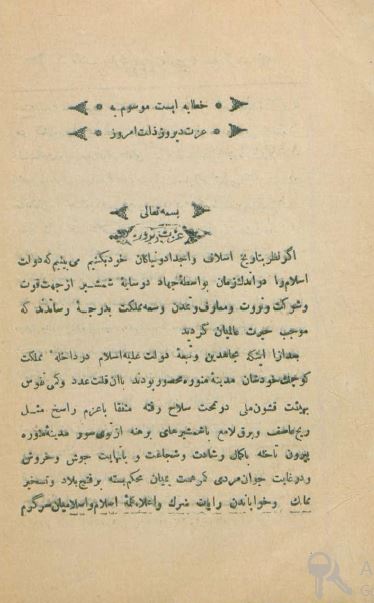 خطابه ایست موسوم به
عزت دیروز و ذلت امروز
بسمه تعالی
عزت دیروزه
اگر نظر بتاریخ اسلاف و اجداد و نیاکان خود بکنیم می بینیم که دولت
اسلام را در اندک زمان بواسطهٔ جهاد در سایهٔ شمشیر از جهت قوت
و شوکت و ثروت و معارف و تمدن و سعه مملکت بدرجهٔ رساندند که
موجب حیرت عالمیان گردید
بعد از اینکه مجاهدین وسیعهٔ دولت علیه اسلام در داخلهٔ مملکت
کوچک خودشان مدینهٔ منوره محصور بودند با آن قلت عدد و کمی نفوس
بهیئت قشون ملی در تحت سلاح رفته متفقا با عزم راسخ مثل
ریح عاصف و برق لامع باشمشیرهای برهنه از توی سور مدینهٔ منوره
بیرون تاخته باکمال رشادت و شجاعت و بانهایت جوش و خروش
و در غایت جوان مردی کمر همت بمیان محکم بسته بر فتح بلاد و تسخیر
ممالک و خواباندن رایات شرک و اعلاء کلمهٔ اسلام و اسلامیان سرگرم
A
G